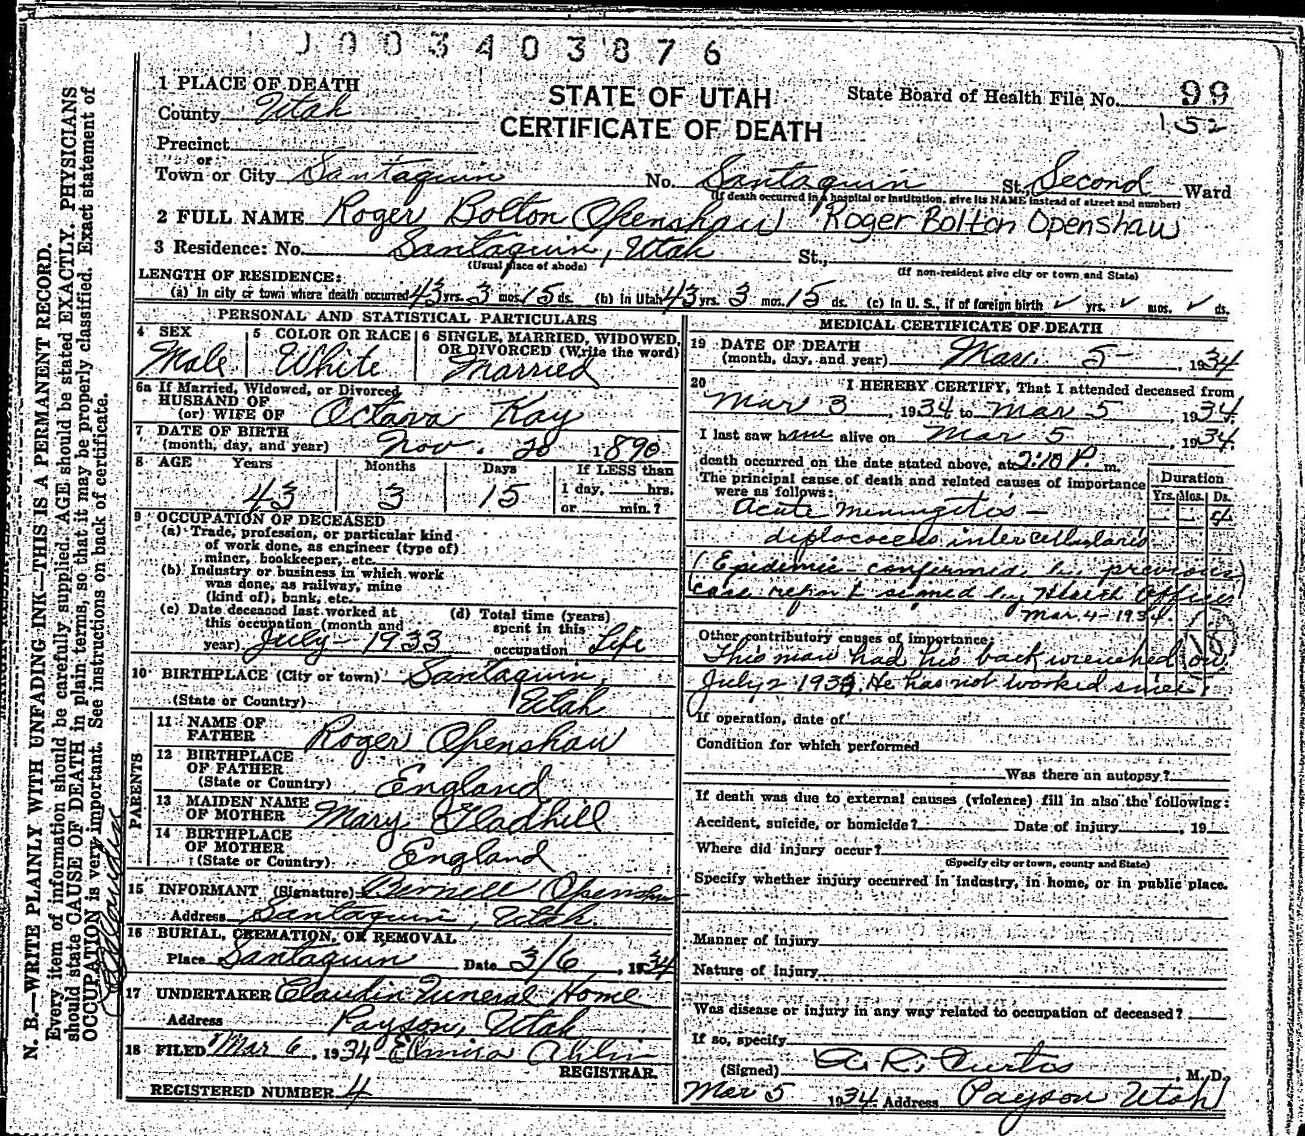 J 0 0 3 4 0 3 8 7 6
1 PLACE OF DEATH
County Utah
STATE OF UTAH
CERTIFICATE OF DEATH
State Board of Health File No. 99
152
Precinct
or
Town or City Santaquin No. Santaquin St. Second Ward
(If death occurred in a hospital or institution, give its NAME instead of street and number)
2 FULL NAME Roger Bolton Openshaw Roger Bolton Openshaw
3 Residence: No. Santaquin, Utah St.,
(Usual place of abode) (If non-resident give city or town and State)
LENGTH OF RESIDENCE:
(a) In city or town where death occurred 43 yrs. 3 mos. 15 ds. (b) in Utah 43 yrs. 3 mos. 15 ds. (c) in U. S., if of foreign birth ✓ yrs. ✓ mos. ✓ ds.
PERSONAL AND STATISTICAL PARTICULARS
4 SEX Male
5 COLOR OR RACE White
6 SINGLE, MARRIED, WIDOWED, OR DIVORCED (Write the word) Married
6a If Married, Widowed, or Divorced
HUSBAND OF
(or) WIFE OF Octava Kay
7 DATE OF BIRTH
(month, day, and year) Nov. 20 1890
8 AGE Years Months Days If LESS than
43 3 15 1 day, hrs.
or min.?
9 OCCUPATION OF DECEASED
(a) Trade, profession, or particular kind
of work done, as engineer (type of)
miner, bookkeeper, etc.
(b) Industry or business in which work
was done, as railway, mine
(kind of), bank, etc.
(c) Date deceased last worked at
this occupation (month and
year) July - 1933
(d) Total time (years)
spent in this
occupation Life
10 BIRTHPLACE (City or town) Santaquin,
(State or Country) Utah
PARENTS
11 NAME OF
FATHER Roger Openshaw
12 BIRTHPLACE
OF FATHER
(State or Country) England
13 MAIDEN NAME
OF MOTHER Mary Gladhill
14 BIRTHPLACE
OF MOTHER
(State or Country) England
15 INFORMANT (Signature) Openshaw
Address Santaquin, Utah.
16 BURIAL, CREMATION, OR REMOVAL
Place Santaquin Date 3/6, 1934
17 UNDERTAKER Claudin Funeral Home
Address Payson, Utah
18 FILED Mar 6, 1934 Elmira
REGISTRAR.
REGISTERED NUMBER 4
MEDICAL CERTIFICATE OF DEATH
19 DATE OF DEATH
(month, day, and year) Mar. 5-, 1934
20 I HEREBY CERTIFY, That I attended deceased from
Mar 3, 1934 to Mar 5, 1934.
I last saw him alive on Mar 5, 1934.
death occurred on the date stated above, at 2:10 P. m.
The principal cause of death and related causes of importance
were as follows:
Duration
Yrs. Mos. Ds.
Acute meningitis -
diplococcus intercellularis
(Epidemic - confirmed by previous
case report signed by Health Officer)
Mar. 4 - 1934.
Other contributory causes of importance:
This man had his back wrenched on
July 2 1933. He has not worked since.
If operation, date of
Condition for which performed
Was there an autopsy?
If death was due to external causes (violence) fill in also the following:
Accident, suicide, or homicide? Date of injury , 19
Where did injury occur?
(Specify city or town, county and State)
Specify whether injury occurred in industry, in home, or in public place.
Manner of injury
Nature of injury
Was disease or injury in any way related to occupation of deceased?
If so, specify
(Signed) A. R. Curtis, M. D.
Mar 5 1934 Address Payson Utah
N. B.—WRITE PLAINLY WITH UNFADING INK—THIS IS A PERMANENT RECORD.
Every item of information should be carefully supplied. AGE should be stated EXACTLY. PHYSICIANS
should state CAUSE OF DEATH in plain terms, so that it may be properly classified. Exact statement of
OCCUPATION is very important. See instructions on back of certificate.